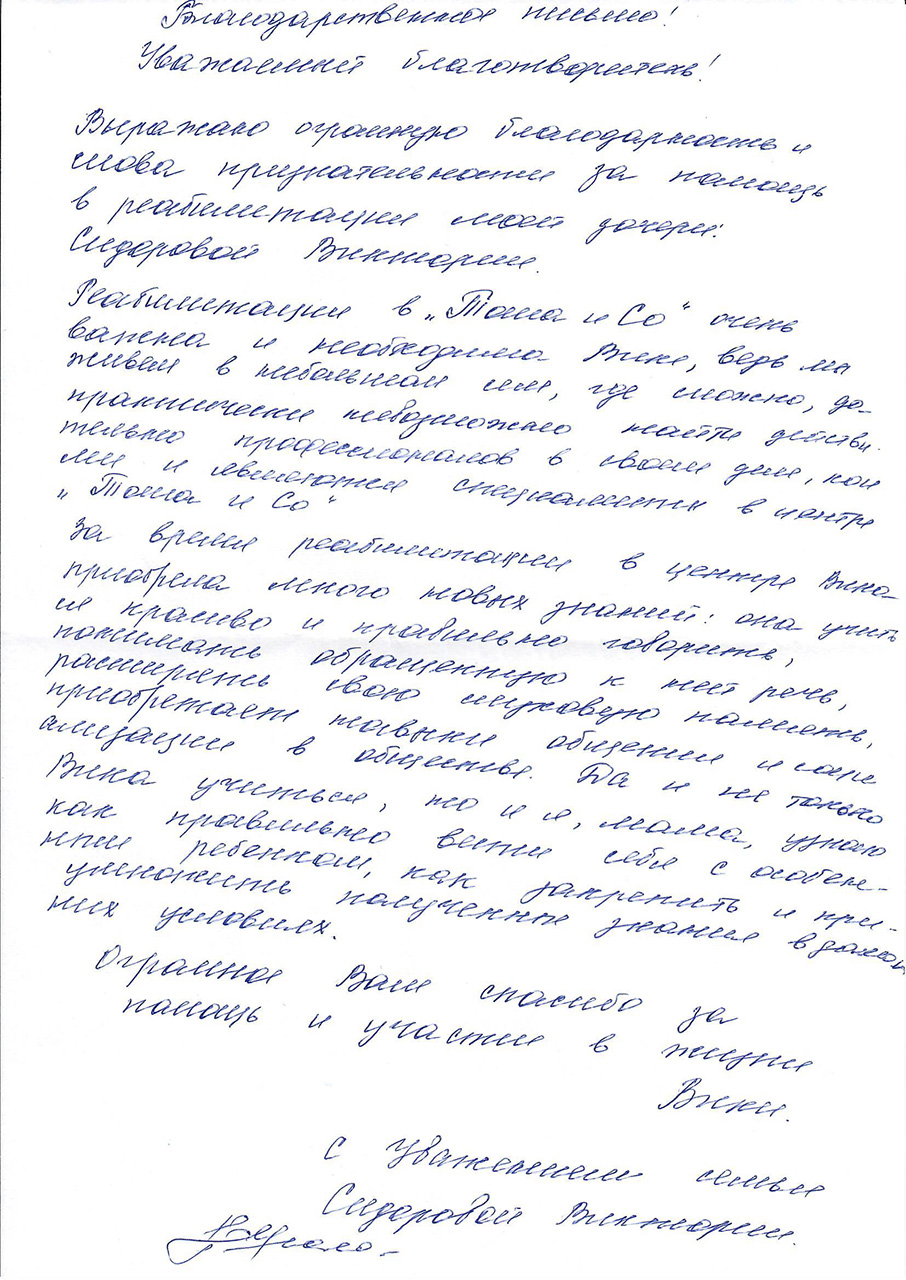 Благодарственное письмо!
Уважаемый благотворитель!
Выражаю огромную благодарность и
слова признательности за помощь
в реабилитации моей дочери:
Сидоровой Виктории.
Реабилитация в „Тоша и Со“ очень
важна и необходима Вике, ведь мы
живем в небольшом селе, где сложно, да-
практически невозможно найти действи-
тельно профессионалов в своем деле, кои
ми и являются специалисты в центре
„Тоша и Со“
За время реабилитации в центре Вика-
приобрела много новых знаний: она учить
ся красиво и правильно говорить,
понимать обращенную к ней речь,
расширять свою слуховую память,
приобретает навыки общения и соци
ализации в обществе. Да и не только
Вика учиться, но и я, мама, узнаю
как правильно вести себя с особен-
ным ребенком, как закрепить и при-
умножить полученные знания в домаш
них условиях.
Огромное Вам спасибо за
помощь и участие в жизни
Вики.
С Уважением семья
Сидоровой Виктории.